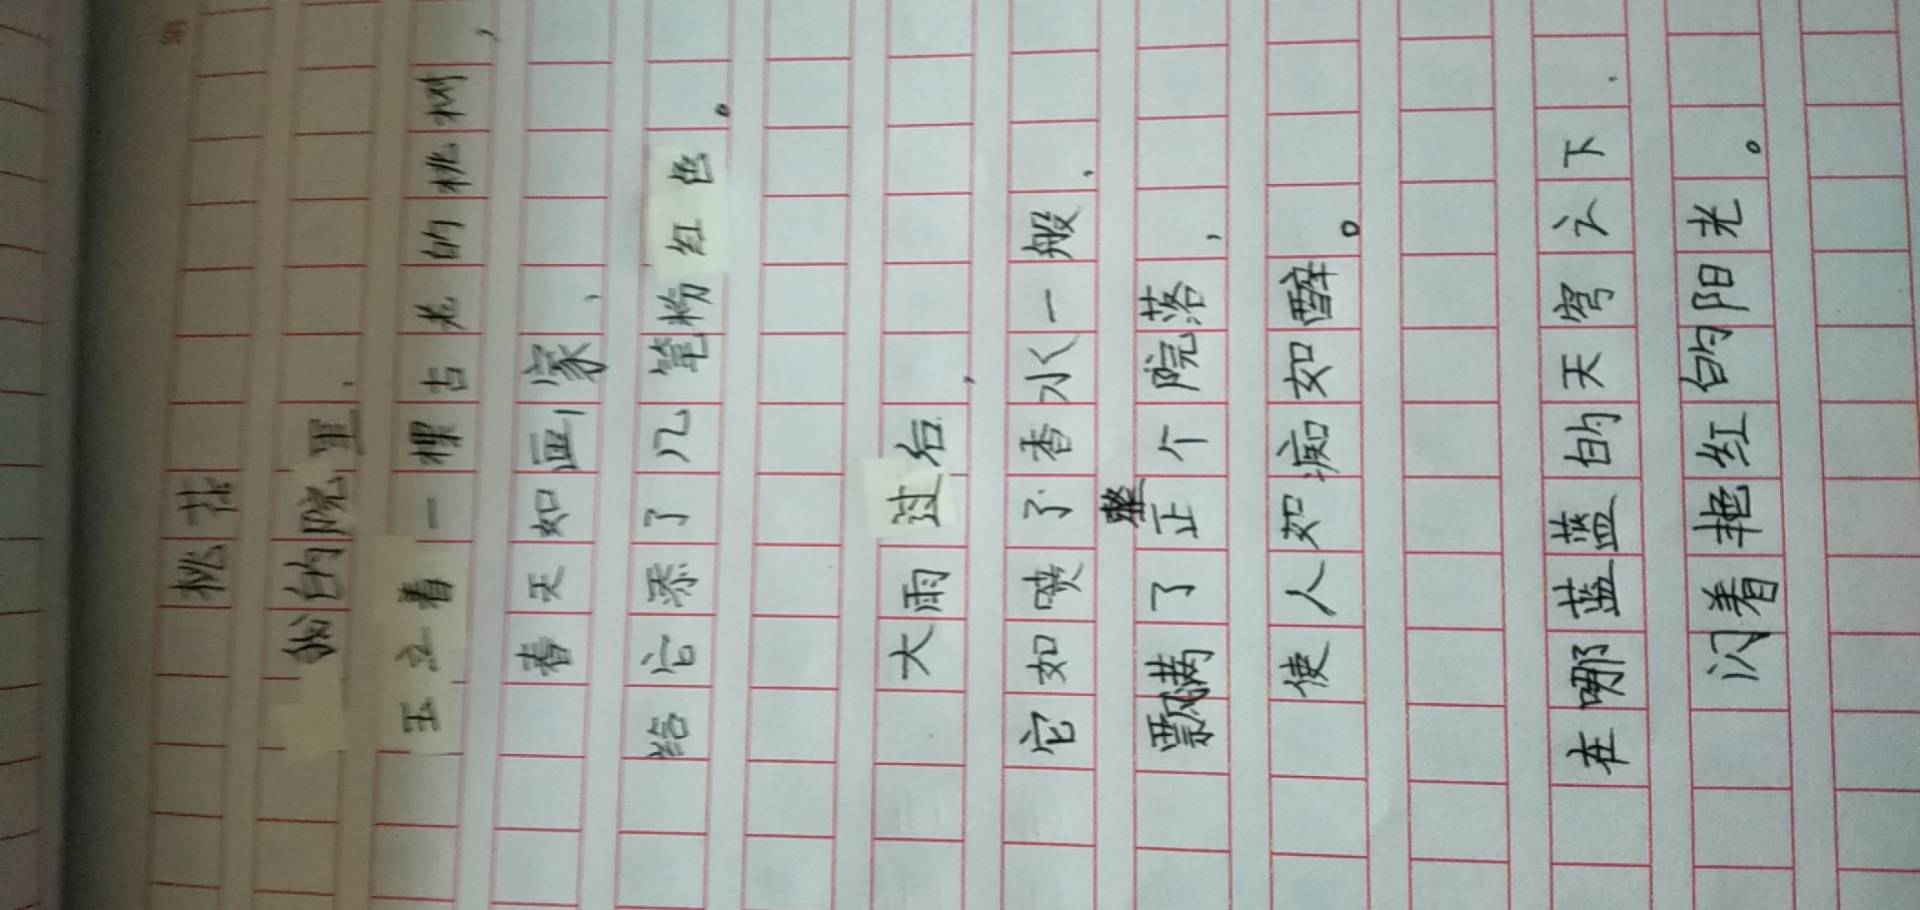 桃花
的院里,
玉立着一棵古老的桃树,
春天如画家,
给它添了几笔粉红色。
大雨过后,
它如喷了香水一般,
飘满了整正个院落,
使人如痴如醉。
在哪蓝蓝的天穹之下,
闪着艳红的阳光。